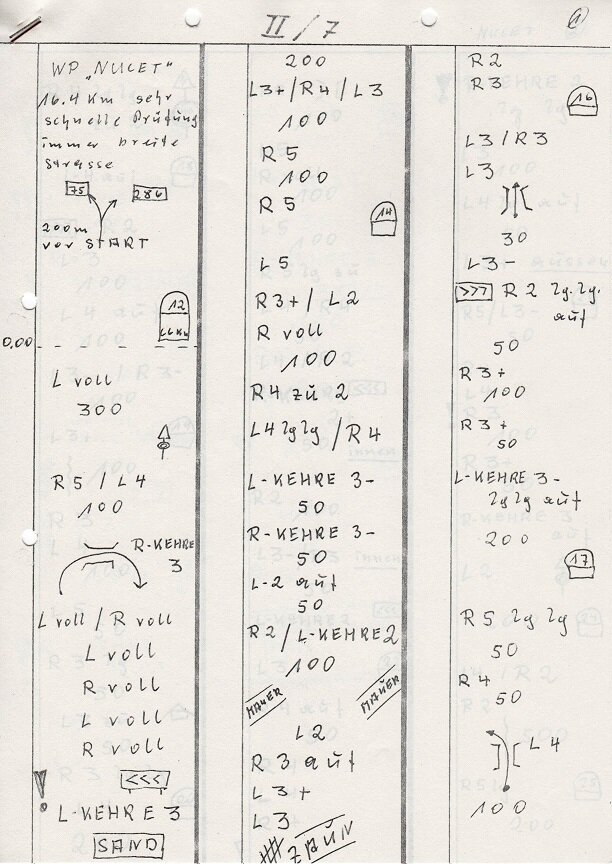 II/7
1
WP „NUCET"
16.4 Km sehr
schnelle Prüfung
immer breite
strasse
75
286
200m
vor START
12
0.00
L voll
300
R5 / L4
100
R-KEHRE
3
L voll / R voll
L voll
R voll
L voll
R voll
<<<
! L-KEHRE 3
SAND
200
L3+/R4/L3
100
R5
100
R5
14
L5
R3+/L2
R voll
100
R4 zü 2
L4 lglg /R4
L-KEHRE 3-
50
R-KEHRE 3-
50
L-2 aüf
50
R2/L-KEHRE2
100
MAUER
MAUER
L2
R3 aüf
L3+
L3
ZAÜN
R2
R3
16
L3/R3
L3
30
L3-
>>> R2 lg.lg.
aüf
50
R3+
100
R3+
50
L-KEHRE 3-
lglg aüf
200
17
R5 lg lg
50
R4
50
L4
100